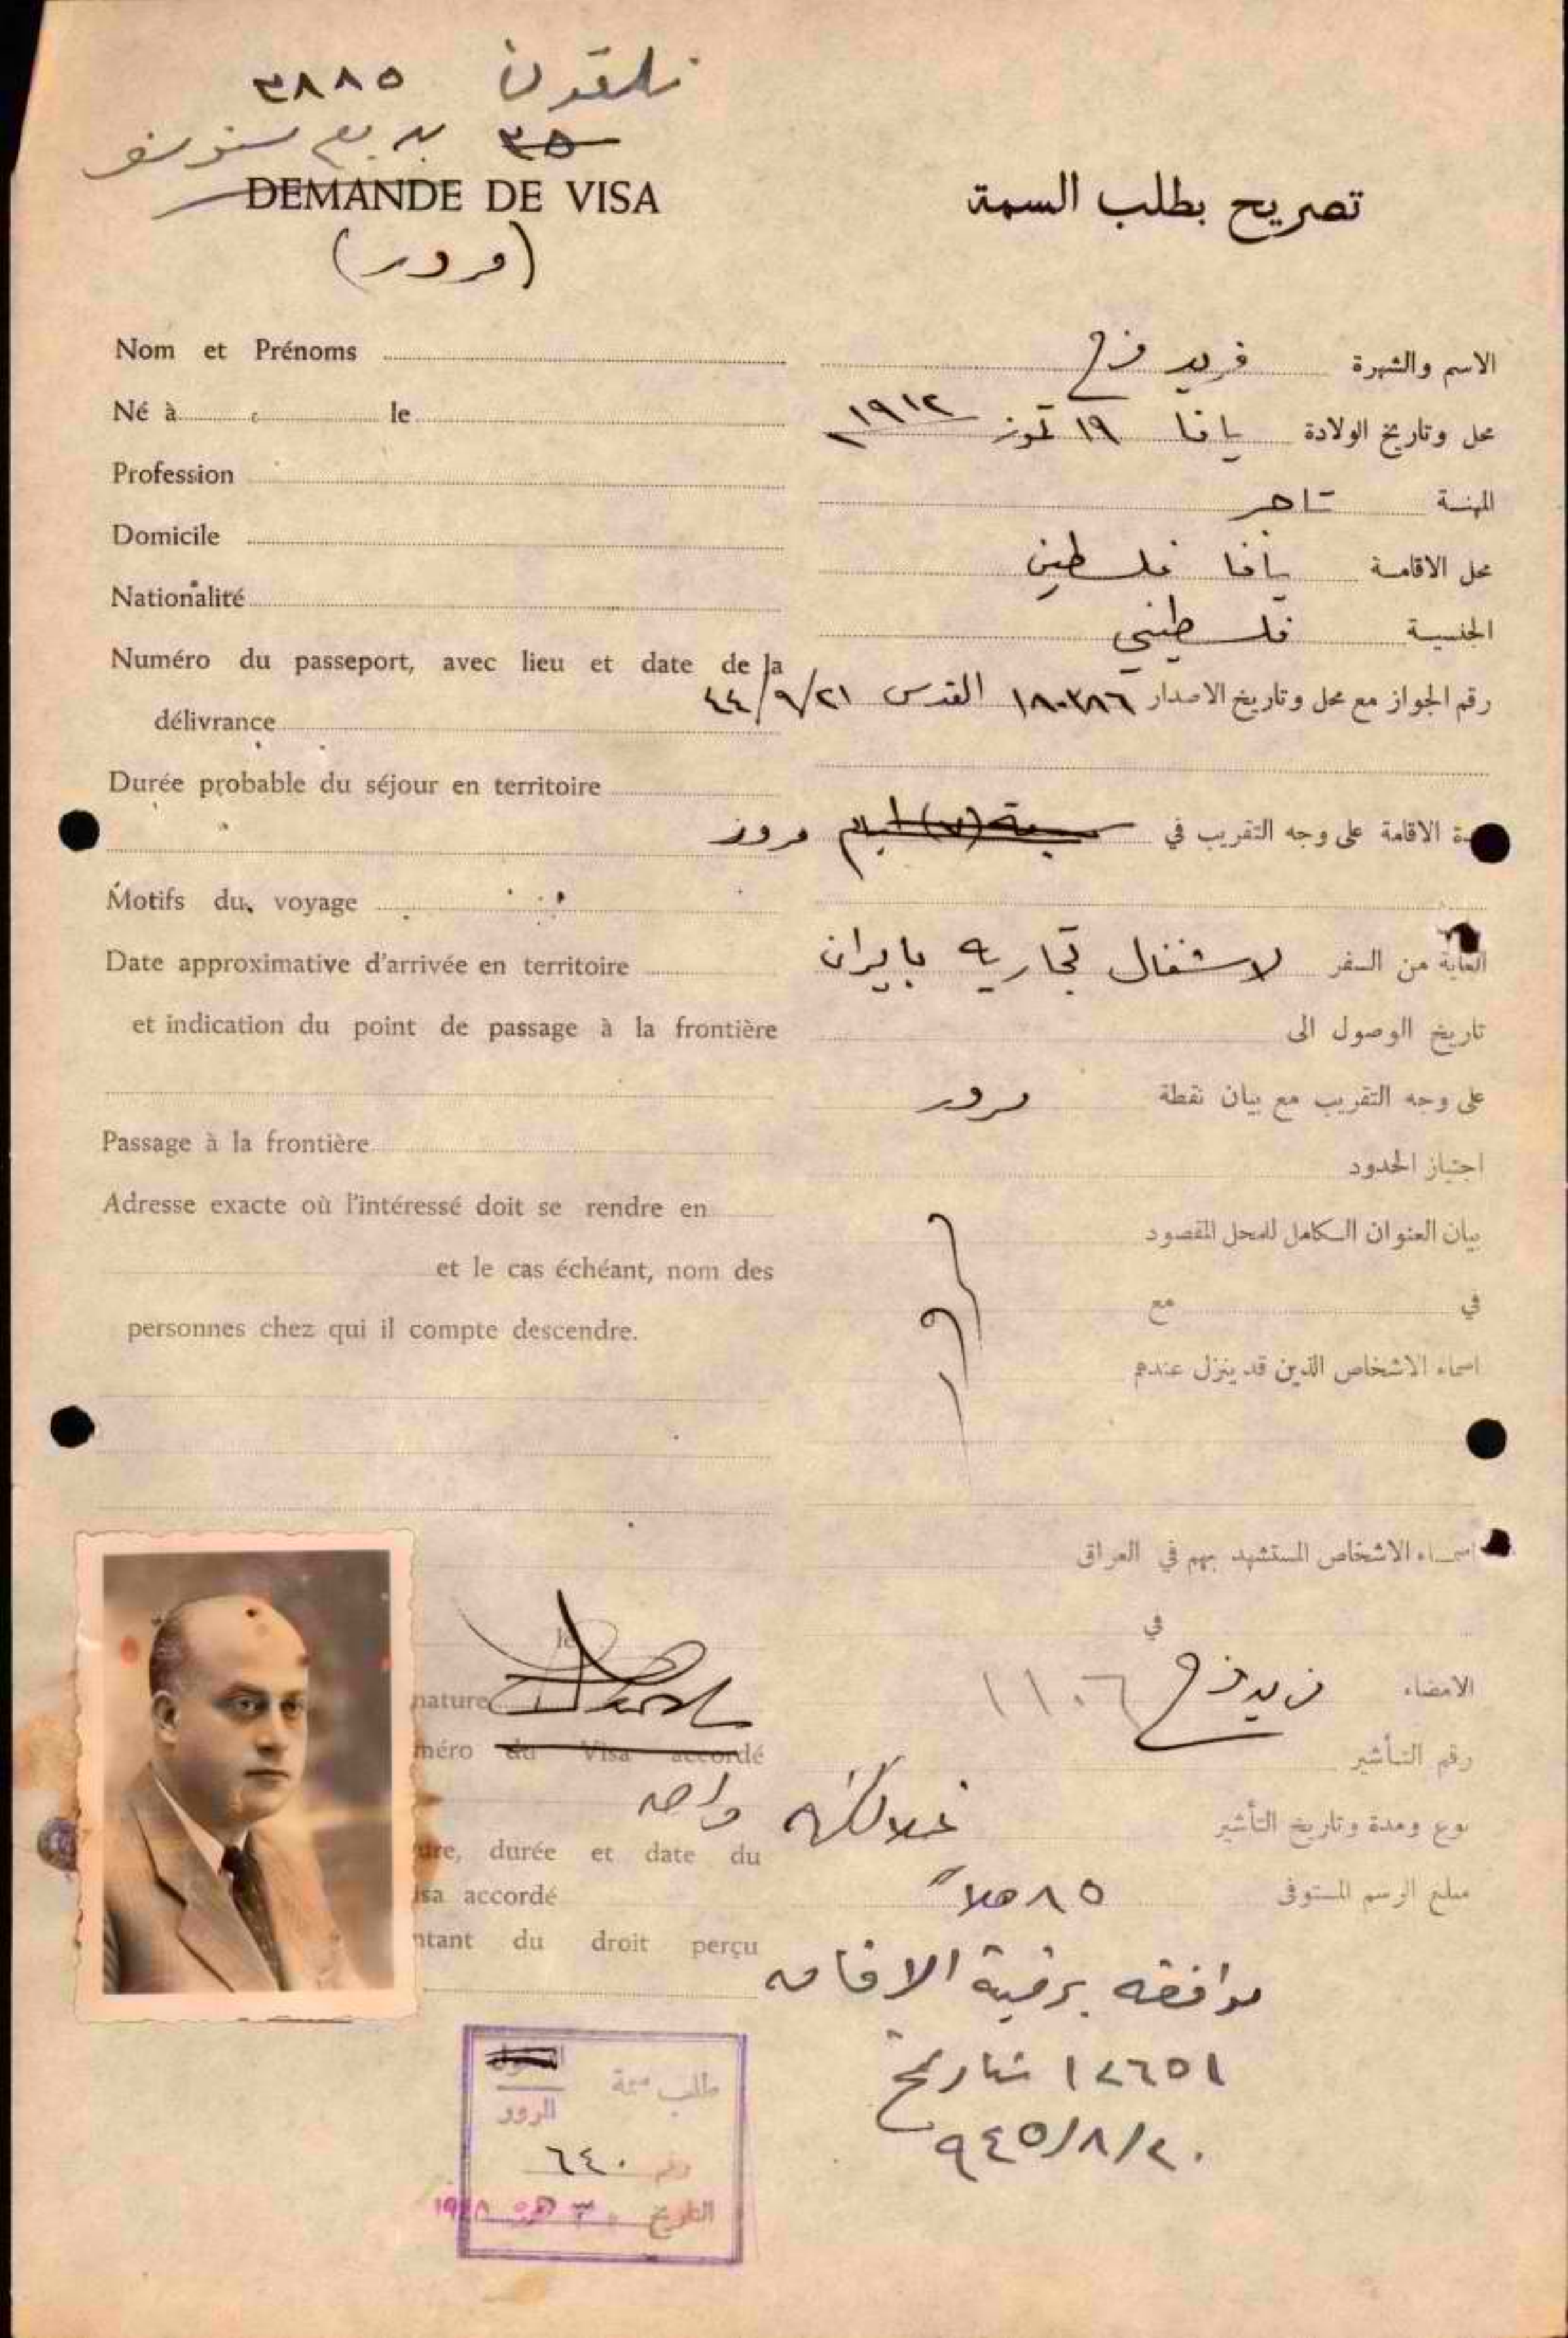 تلفون ٣٨٨٥
٣٥
DEMANDE DE VISA
(مرور)
تصريح بطلب السمة
Nom et Prénoms
الاسم والشهرة فريد فرح
Né à le
محل وتاريخ الولادة يافا ١٩ تموز ١٩١٢
Profession
المهنة تاجر
Domicile
محل الاقامة يافا فلسطين
Nationalité
الجنسية فلسطيني
Numéro du passeport, avec lieu et date de la
délivrance
رقم الجواز مع محل وتاريخ الاصدار ١٨٠٣٨٦ القدس ٤٤/٩/٢١
Durée probable du séjour en territoire
ة الاقامة على وجه التقريب في سبعة (٧) ايام مرور
Motifs du voyage
الغاية من السفر لاشغال تجاريه بايران
Date approximative d'arrivée en territoire
et indication du point de passage à la frontière
تاريخ الوصول الى
على وجه التقريب مع بيان نقطة مرور
Passage à la frontière
اجتياز الحدود
Adresse exacte où l'intéressé doit se rendre en
et le cas échéant, nom des
personnes chez qui il compte descendre.
بيان العنوان الكامل للمحل المقصود
في مع
اسماء الاشخاص الذين قد ينزل عندهم
اسماء الاشخاص المستشهد بهم في العراق
le
في
nature
الامضاء فريد فرح ١١٠٦
méro du Visa accordé
رقم التأشير
واحد
نوع ومدة وتاريخ التأشير
ure, durée et date du
isa accordé
مبلغ الرسم المستوفى ٨٥
ntant du droit perçu
موافقه برقية الاقامه
١٢٦٥١ بتاريخ
٩٤٥/٨/٢٠
طلب سمة
المرور
رقم ٦٤٠
التاريخ